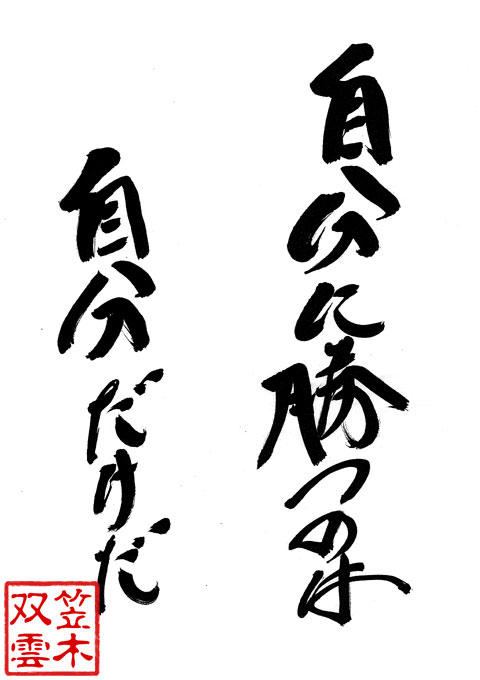 自分に勝つのは
自分だけだ
笠木
双雲